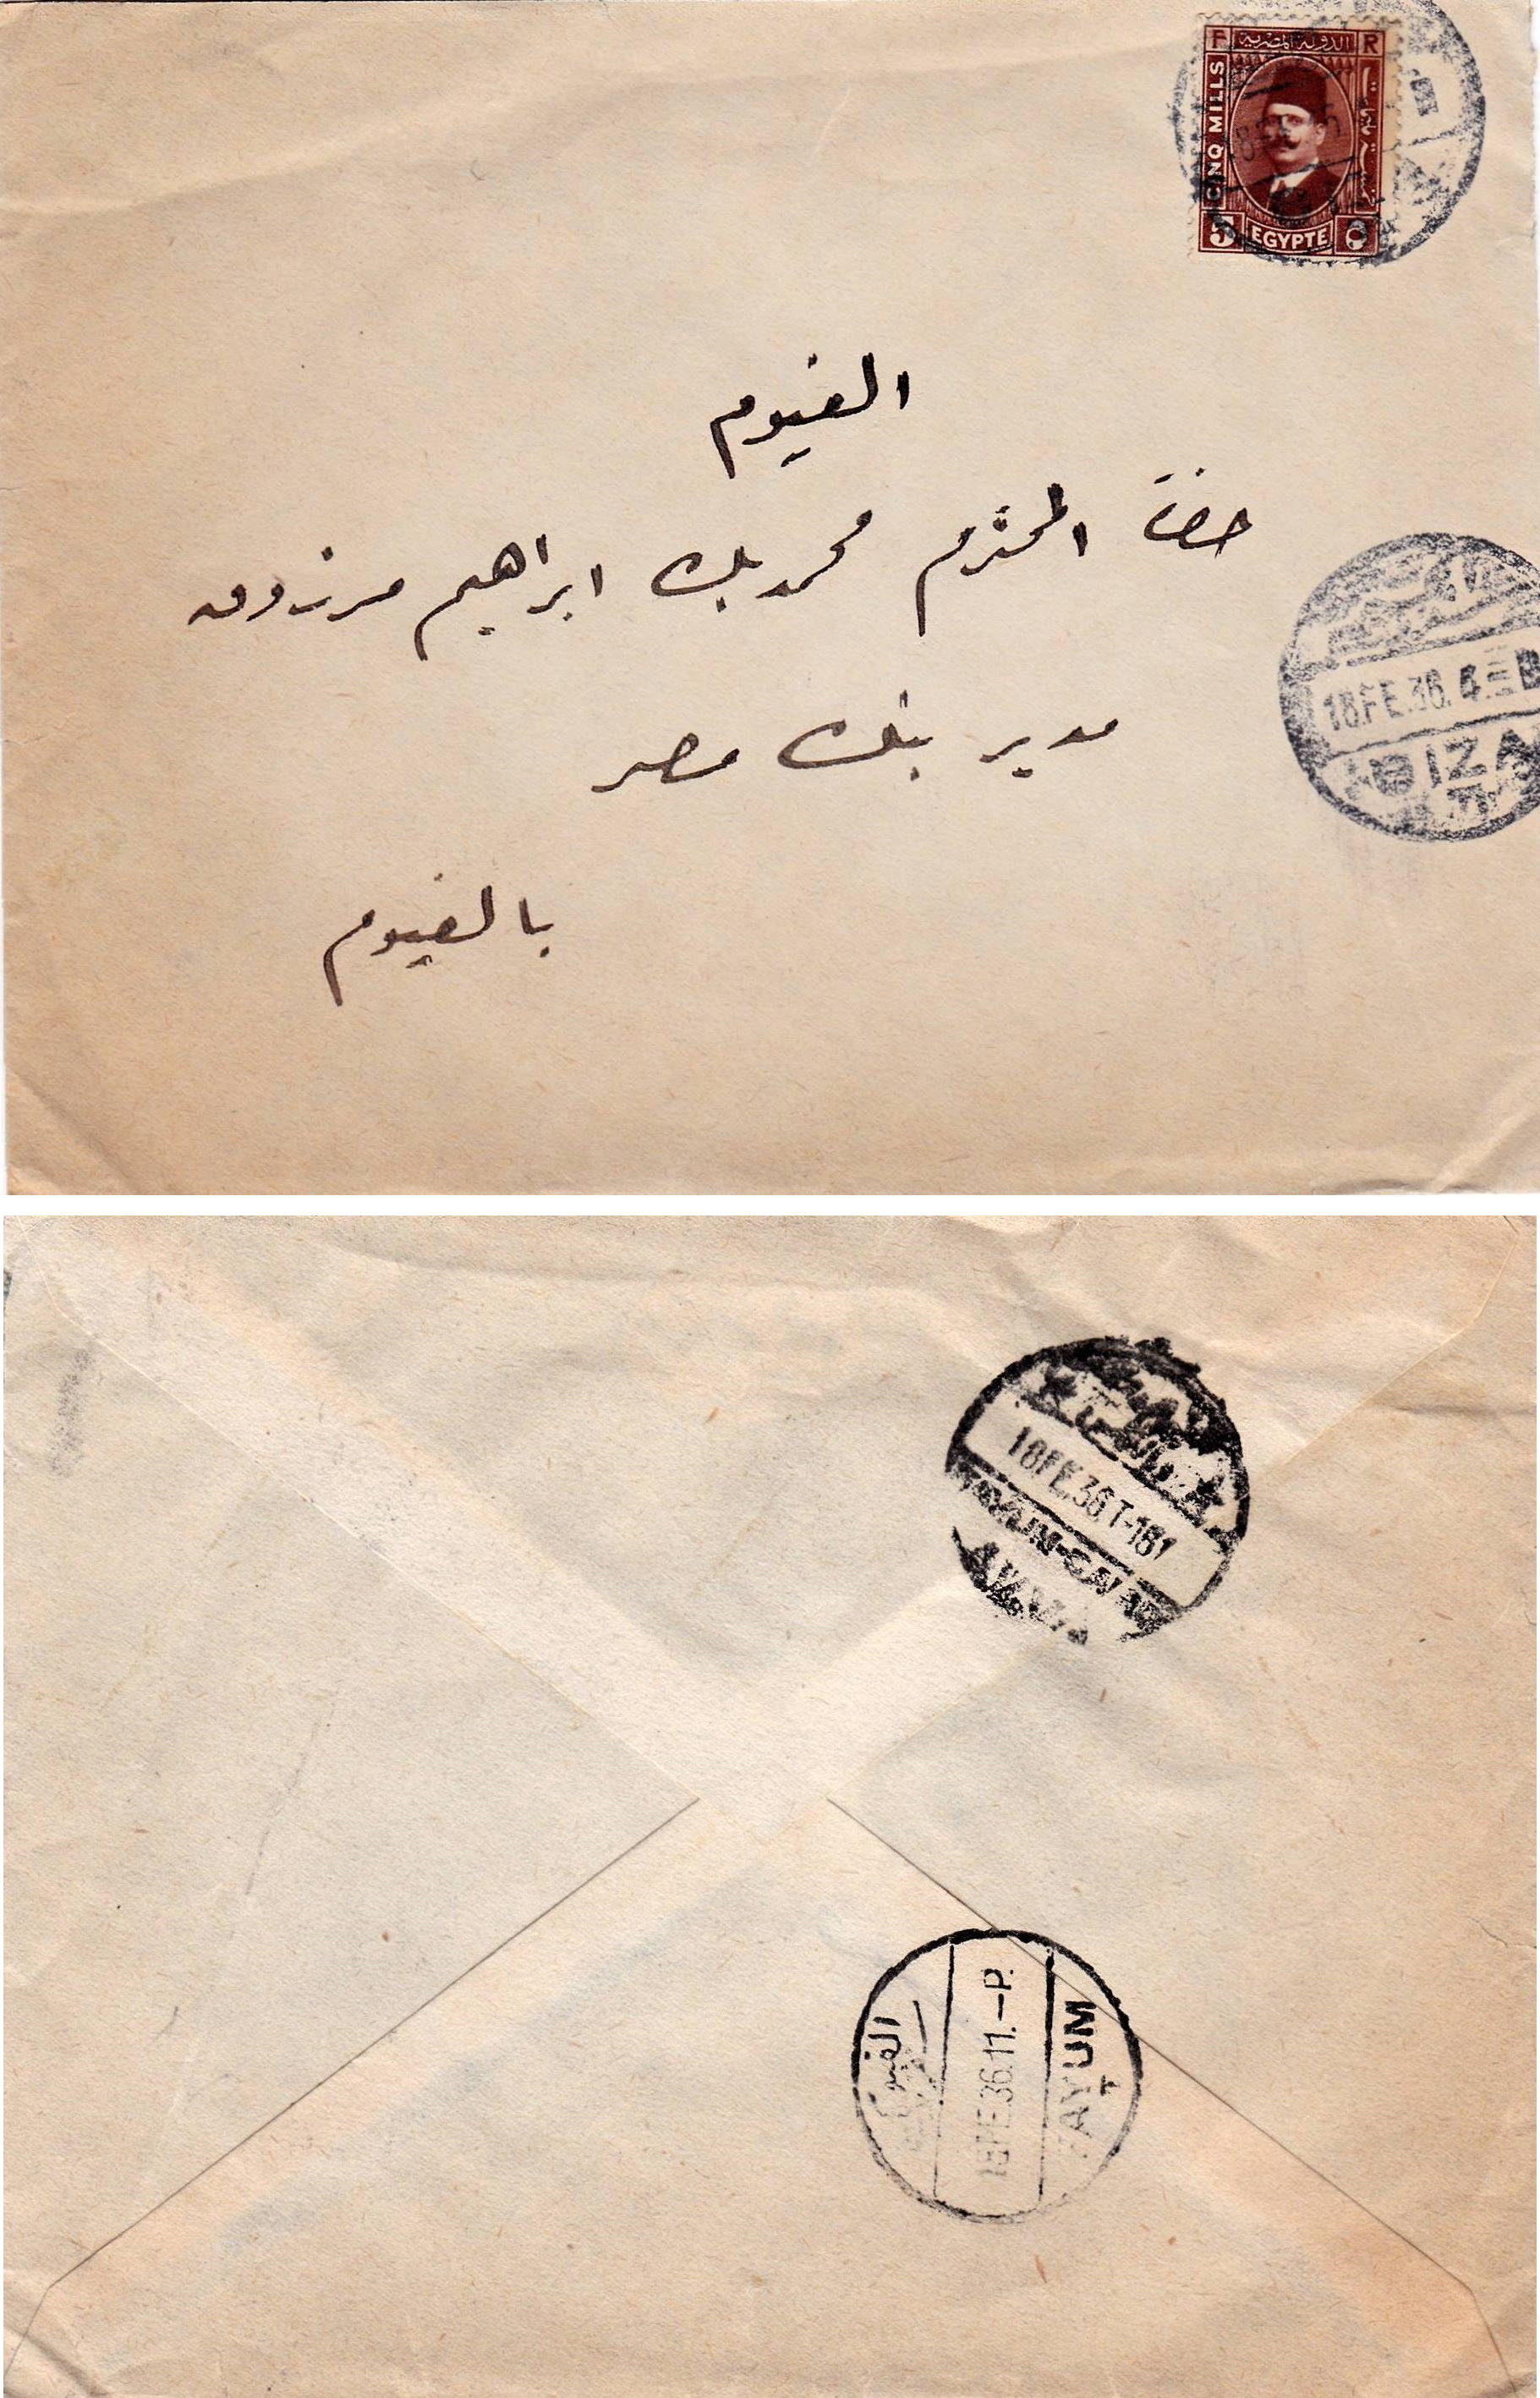 F الدولة المصرية R
CINQ MILLS
5 EGYPTE ٥
الفيوم
حضرة المحترم محمد بك ابراهيم مرزوق
مدير بنك مصر
بالفيوم
18.FE.36.
GIZA
18FE.36.T-181
الفيوم
18.FE.36.11.—P.
FAYUM